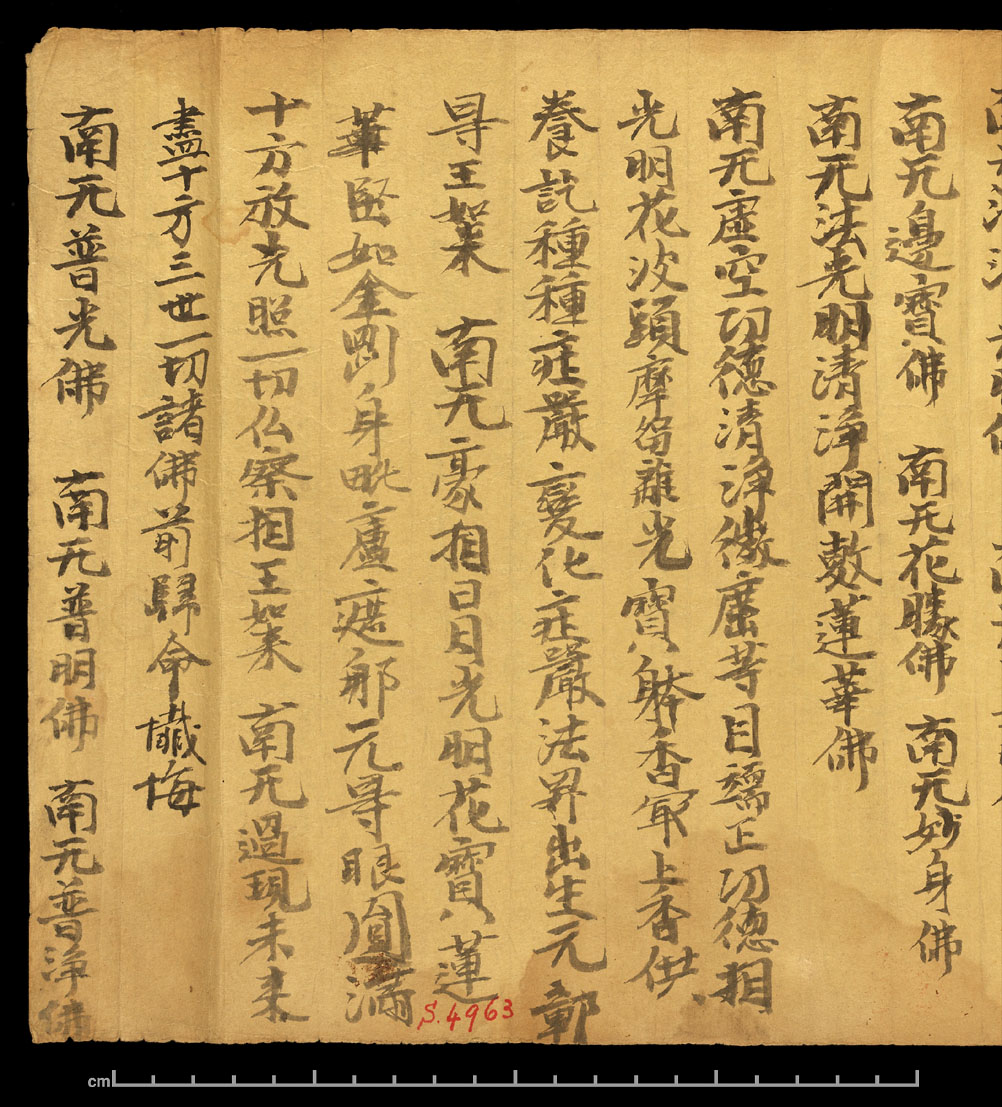 南无邊寶佛　南无花勝佛　南无妙身佛
南无法光明清淨開敷蓮華佛
南无虛空功德清淨微塵等目端正功德相
光明花波頭摩瑠離光寶躰香最上香供
養訖種種莊嚴變化莊嚴法界出生无鄣
㝵王如来　南无豪相日月光明花寶蓮
華堅如金剛身毗盧遮那无㝵眼圓滿
十方放光照一切仏察相王如来　南无過現未来
盡十方三世一切諸佛前歸命懺悔
南无普光佛　南无普明佛　南无普淨佛
S.4963
cm